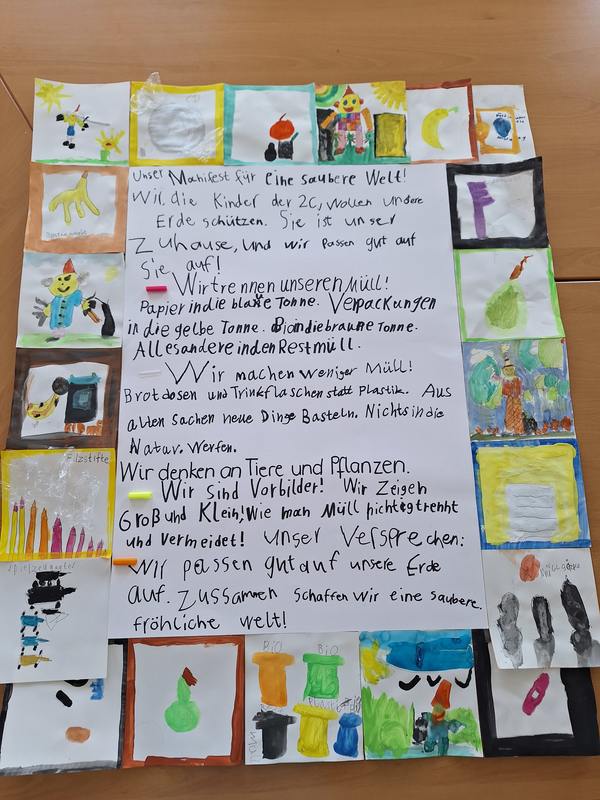 Unser Manifest für eine saubere Welt!
Wir, die Kinder der 2C, wollen undere
Erde schützen. Sie ist unser
Zuhause, und wir passen gut auf
Sie auf!
Wir trennen unseren Müll!
Papier in die blaue Tonne. Verpackungen
in die gelbe Tonne. Bio in die braune Tonne.
Alles andere in den Restmüll.
Wir machen weniger Müll!
Brotdosen und Trinkflaschen statt Plastik. Aus
alten Sachen neue Dinge Basteln. Nichts in die
Natur. Werfen.
Wir denken an Tiere und Pflanzen.
Wir Sind Vorbilder! Wir Zeigen
Groß und Klein! Wie man Müll richtig trennt
und vermeidet! Unser Versprechen:
Wir passen gut auf unsere Erde
auf. Zussammen schaffen Wir eine saubere.
fröhliche Welt!
Filzstifte
BiO
BiO